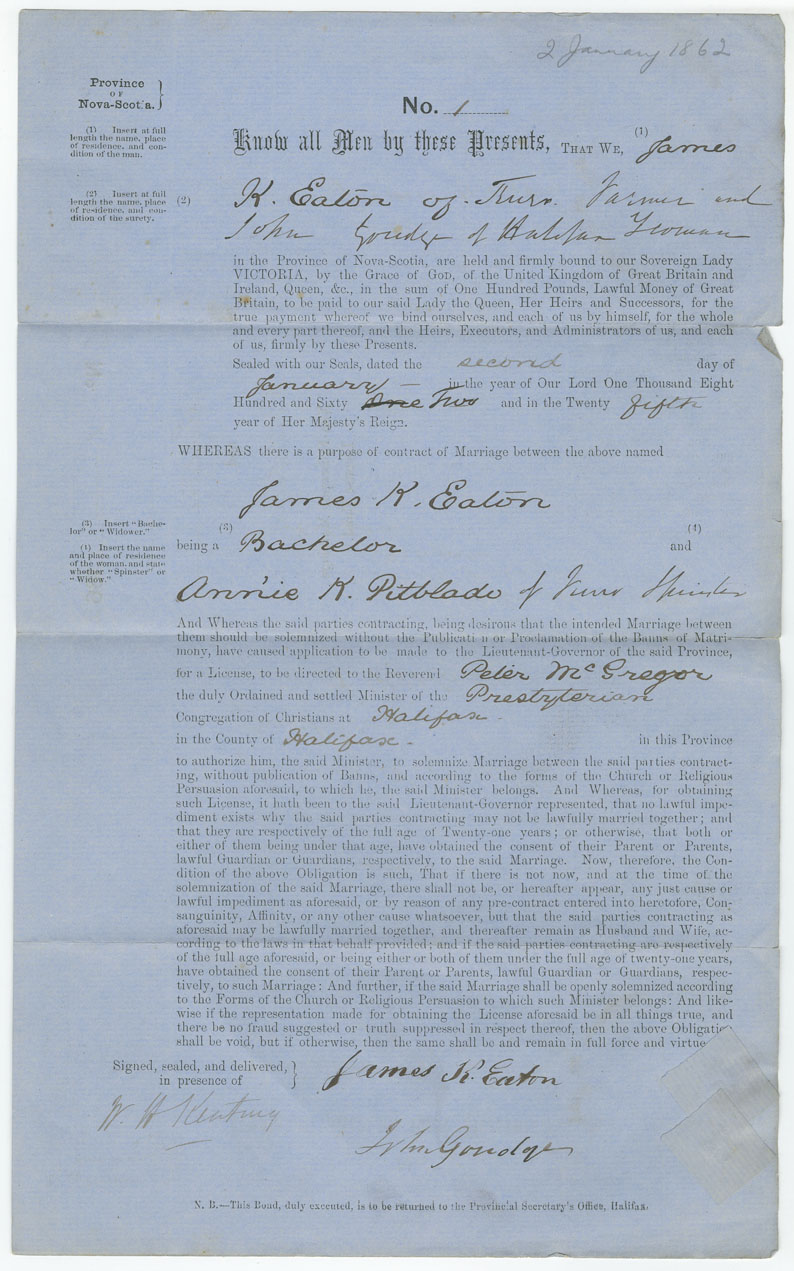 2 January 1862
Province
OF
Nova-Scotia.
No. 1
(1) Insert at full
length the name, place
of residence, and con-
dition of the man.
Know all Men by these Presents, THAT WE, (1) James
(2) Insert at full
length the name, place
of residence, and con-
dition of the surety.
(2) K. Eaton of Truro Farmer and
John Goudge of Halifax Yeoman
in the Province of Nova-Scotia, are held and firmly bound to our Sovereign Lady
VICTORIA, by the Grace of GOD, of the United Kingdom of Great Britain and
Ireland, Queen, &c., in the sum of One Hundred Pounds, Lawful Money of Great
Britain, to be paid to our said Lady the Queen, Her Heirs and Successors, for the
true payment whereof we bind ourselves, and each of us by himself, for the whole
and every part thereof, and the Heirs, Executors, and Administrators of us, and each
of us, firmly by these Presents.
Sealed with our Seals, dated the second day of
January in the year of Our Lord One Thousand Eight
Hundred and Sixty One Two and in the Twenty fifth
year of Her Majesty's Reign.
WHEREAS there is a purpose of contract of Marriage between the above named
James K. Eaton
(3) Insert "Bache-
lor" or "Widower."
(4) Insert the name
and place of residence
of the woman, and state
whether "Spinster" or
"Widow."
being a (3) Bachelor and (4)
Annie K. Pitblado of Truro Spinster
And Whereas the said parties contracting, being desirous that the intended Marriage between
them should be solemnized without the Publicati n or Proclamation of the Banns of Matri-
mony, have caused application to be made to the Lieutenant-Governor of the said Province,
for a License, to be directed to the Reverend Peter McGregor
the duly Ordained and settled Minister of the Presbyterian
Congregation of Christians at Halifax
in the County of Halifax in this Province
to authorize him, the said Minister, to solemnize Marriage between the said parties contract-
ing, without publication of Banns, and according to the forms of the Church or Religious
Persuasion aforesaid, to which he, the said Minister belongs. And Whereas, for obtaining
such License, it hath been to the said Lieutenant-Governor represented, that no lawful impe-
diment exists why the said parties contracting may not be lawfully married together; and
that they are respectively of the full age of Twenty-one years; or otherwise, that both or
either of them being under that age, have obtained the consent of their Parent or Parents,
lawful Guardian or Guardians, respectively, to the said Marriage. Now, therefore, the Con-
dition of the above Obligation is such, That if there is not now, and at the time of the
solemnization of the said Marriage, there shall not be, or hereafter appear, any just cause or
lawful impediment as aforesaid, or by reason of any pre-contract entered into heretofore, Con-
sanguinity, Affinity, or any other cause whatsoever, but that the said parties contracting as
aforesaid may be lawfully married together, and thereafter remain as Husband and Wife, ac-
cording to the laws in that behalf provided; and if the said parties contracting are respectively
of the full age aforesaid, or being either or both of them under the full age of twenty-one years,
have obtained the consent of their Parent or Parents, lawful Guardian or Guardians, respec-
tively, to such Marriage: And further, if the said Marriage shall be openly solemnized according
to the Forms of the Church or Religious Persuasion to which such Minister belongs: And like-
wise if the representation made for obtaining the License aforesaid be in all things true, and
there be no fraud suggested or truth suppressed in respect thereof, then the above Obligation
shall be void, but if otherwise, then the same shall be and remain in full force and virtue.
Signed, sealed, and delivered,
in presence of
James K. Eaton
W. H. Keating
John Goudge
N. B.—This Bond, duly executed, is to be returned to the Provincial Secretary's Office, Halifax.